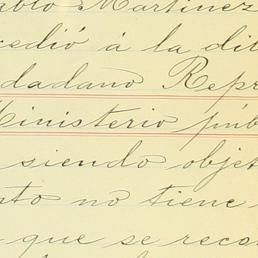 ablo Martinez
cedió á la dil
dadano Repr
Ministerio púb
siendo objet
sto no tiene
que se reco